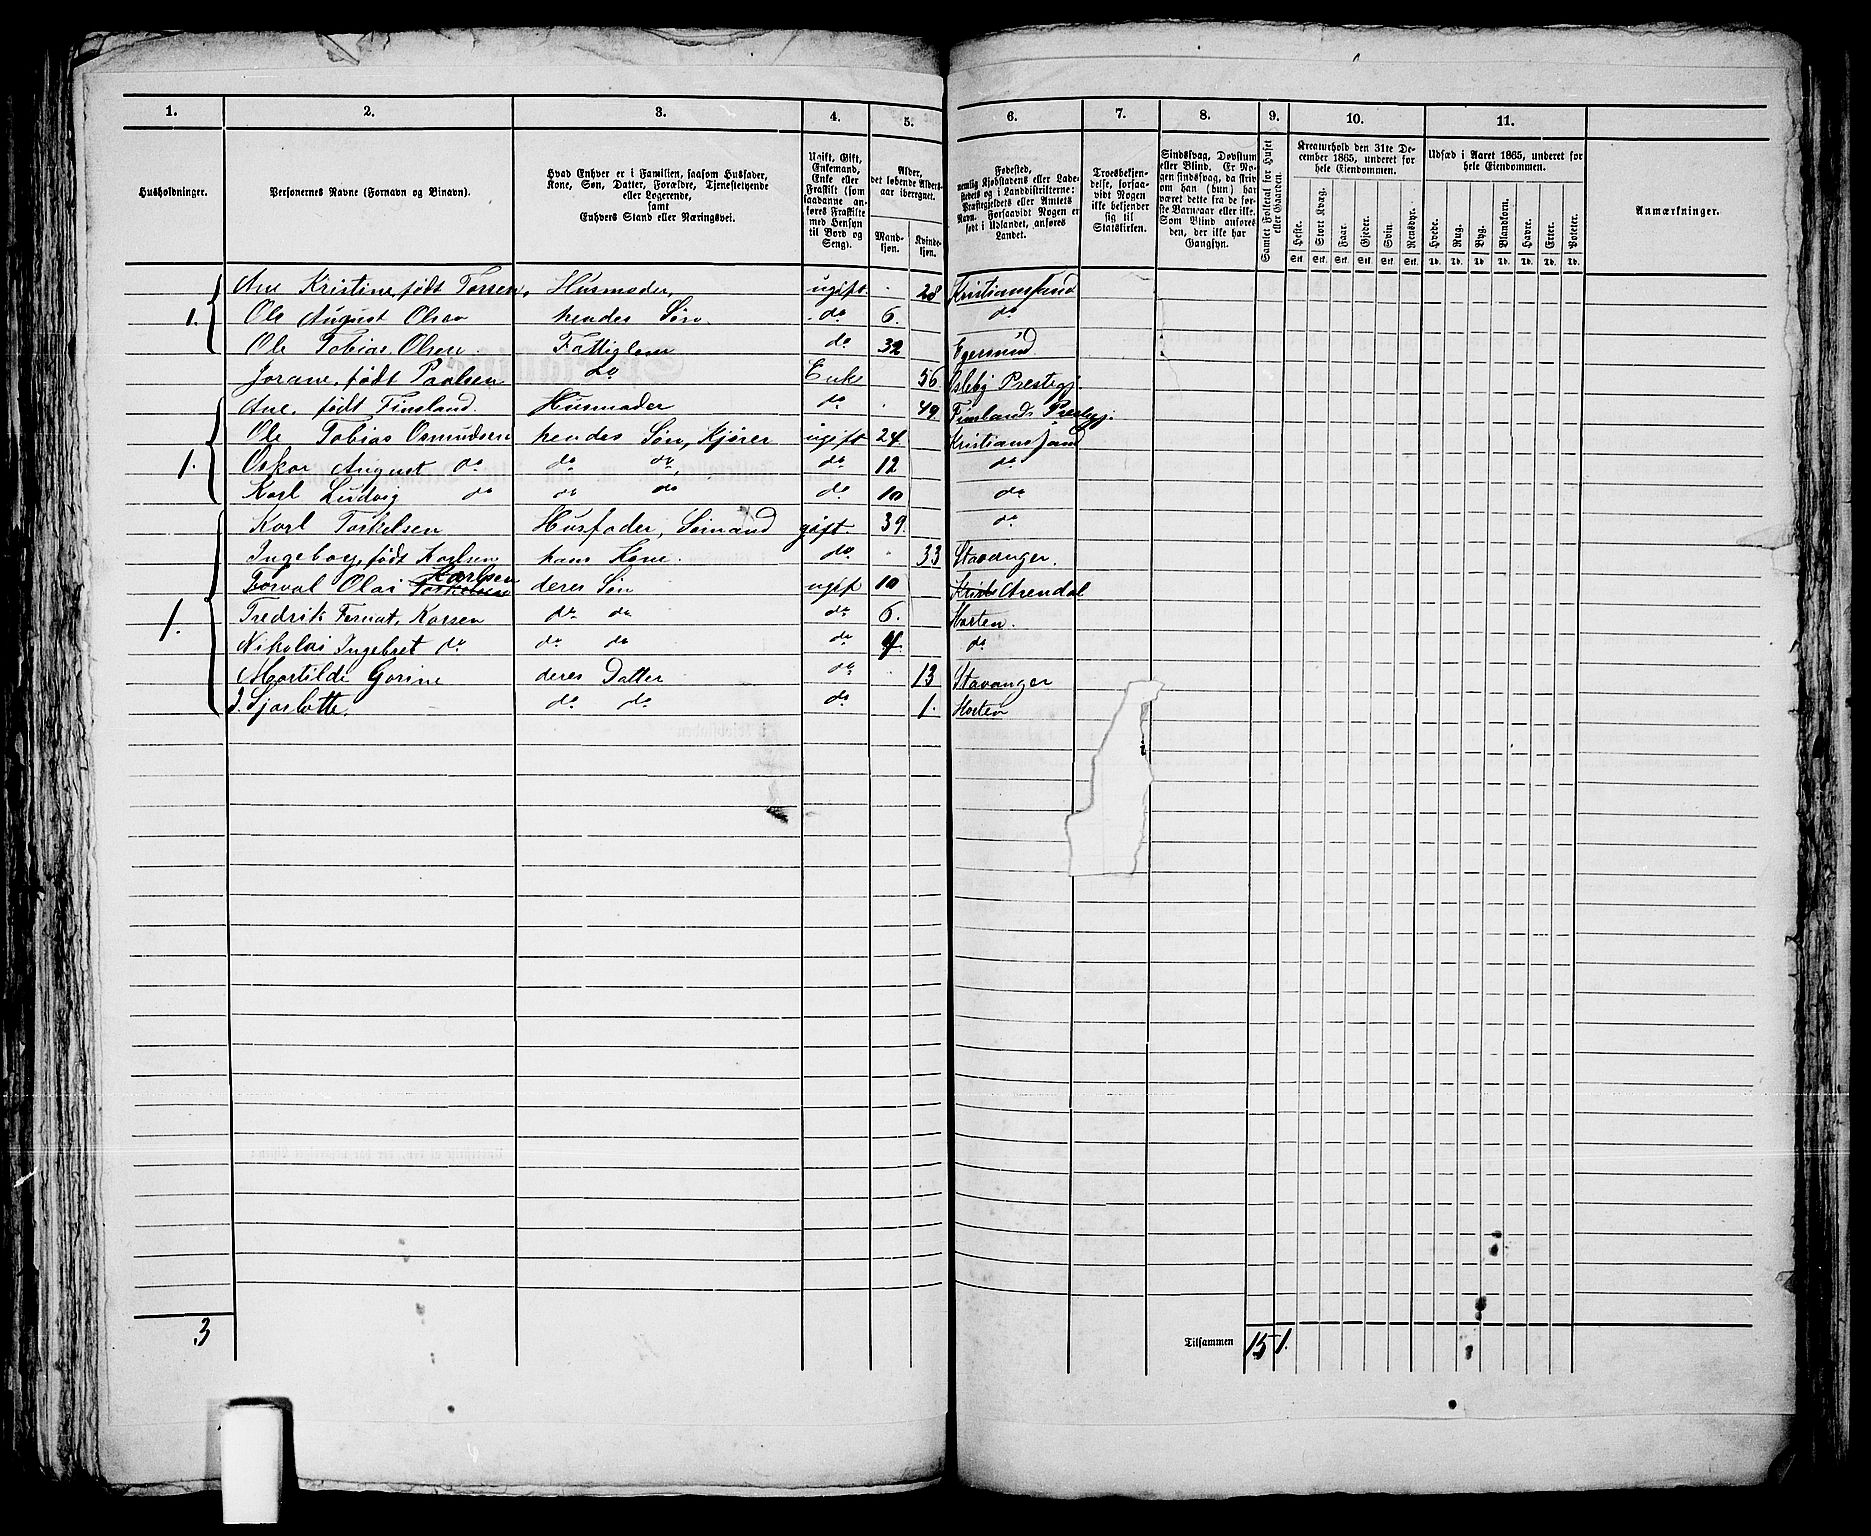 1. 2. 3. 4. 5. 6. 7. 8. 9. 10. 11.
Husholdninger.
Personernes Navne (Fornavn og Binavn).
Hvad Enhver er i Familien, saasom Husfader,
Kone, Søn, Datter, Forældre, Tjenestetyende
eller Logerende,
samt
Enhvers Stand eller Næringsvei.
Ugift, Gift,
Enkemand,
Enke eller
Fraskilt (som
saadanne an-
føres Fraskilte
med Hensyn
til Bord og
Seng).
Alder,
det løbende Alders-
aar iberegnet.
Mand-
kjøn.
Kvinde-
kjøn.
Fødested,
nemlig Kjøbstadens eller Lade-
stedets og i Landdistrikterne:
Præstegjeldets eller Amtets
Navn. Forsaavidt Nogen er
født i Udlandet, anføres
Landet.
Troesbekjen-
delse, forsaa-
vidt Nogen
ikke bekjender
sig til
Statskirken.
Sindssvag, Døvstum
eller Blind. Er No-
gen sindssvag, da skriv
om han (hun) har
været dette fra de før-
ste Barneaar eller ikke.
Som Blind anføres
den, der ikke har
Gangsyn.
Samlet Folketal for Huset
eller Gaarden.
Kreaturhold den 31te De-
cember 1865, underet for
hele Eiendommen.
Heste. Stort Kvæg. Faar. Gjeder. Svin. Rensdyr.
Stk. Stk. Stk. Stk. Stk. Stk.
Udsæd i Aaret 1865, underet for
hele Eiendommen.
Hvede. Rug. Byg. Blandkorn. Havre. Erter. Poteter.
Td. Td. Td. Td. Td. Td. Td.
Anmærkninger.
Ane Kristine, født Torsen, Husmoder, ugift. 28 Kristiansand
1. Ole August Olsen hendes Søn. do 6. do
Ole Tobias Olsen Fattiglem do 32 Egersund
Jorane, født Paulsen Do Enke 56. Præstegj.
Ane, født Finsland. Husmoder do 49. Finslands Prestegj.
Ole Tobias Osmundsen hendes Søn, Kjører ugift 24 Kristiansand
1. Oskar August do do do, do 12 do
Karl Ludvig do do do do 10 do
Karl Torkelsen Husfader, Sømand gift. 39. do
Ingeborg, født Karlsen hans Kone. do. 33 Stavanger.
Torval Olai Karlsen deres Søn ugift 10 Arendal
1. Fredrik Karsen do do do 6. Horten.
Nikolai Ingebret do do do do 4. do
Martilde Gorine deres Datter do 13 Stavanger
J. Sjarlotte. do do do 1. Horten
3
Tilsammen 15 1.